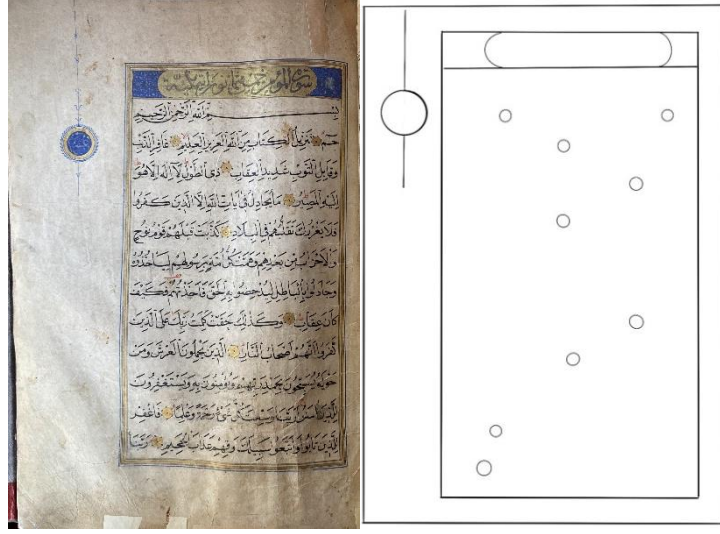 سورة المؤمن مكية
بسم الله الرحمن الرحيم
حم تنزيل الكتاب من الله العزيز العليم غافر الذنب
وقابل التوب شديد العقاب ذي الطول لا اله الا هو
اليه المصير ما يجادل في ايات الله الا الذين كفروا
فلا يغررك تقلبهم في البلاد كذبت قبلهم قوم نوح
والاحزاب من بعدهم وهمت كل امة برسولهم ليأخذوه
وجادلوا بالباطل ليدحضوا به الحق فاخذتهم فكيف
كان عقاب وكذلك حقت كلمت ربك على الذين
كفروا انهم اصحاب النار الذين يحملون العرش ومن
حوله يسبحون بحمد ربهم ويؤمنون به ويستغفرون
للذين امنوا ربنا وسعت كل شيء رحمة وعلما فاغفر
للذين تابوا واتبعوا سبيلك وقهم عذاب الجحيم ربنا